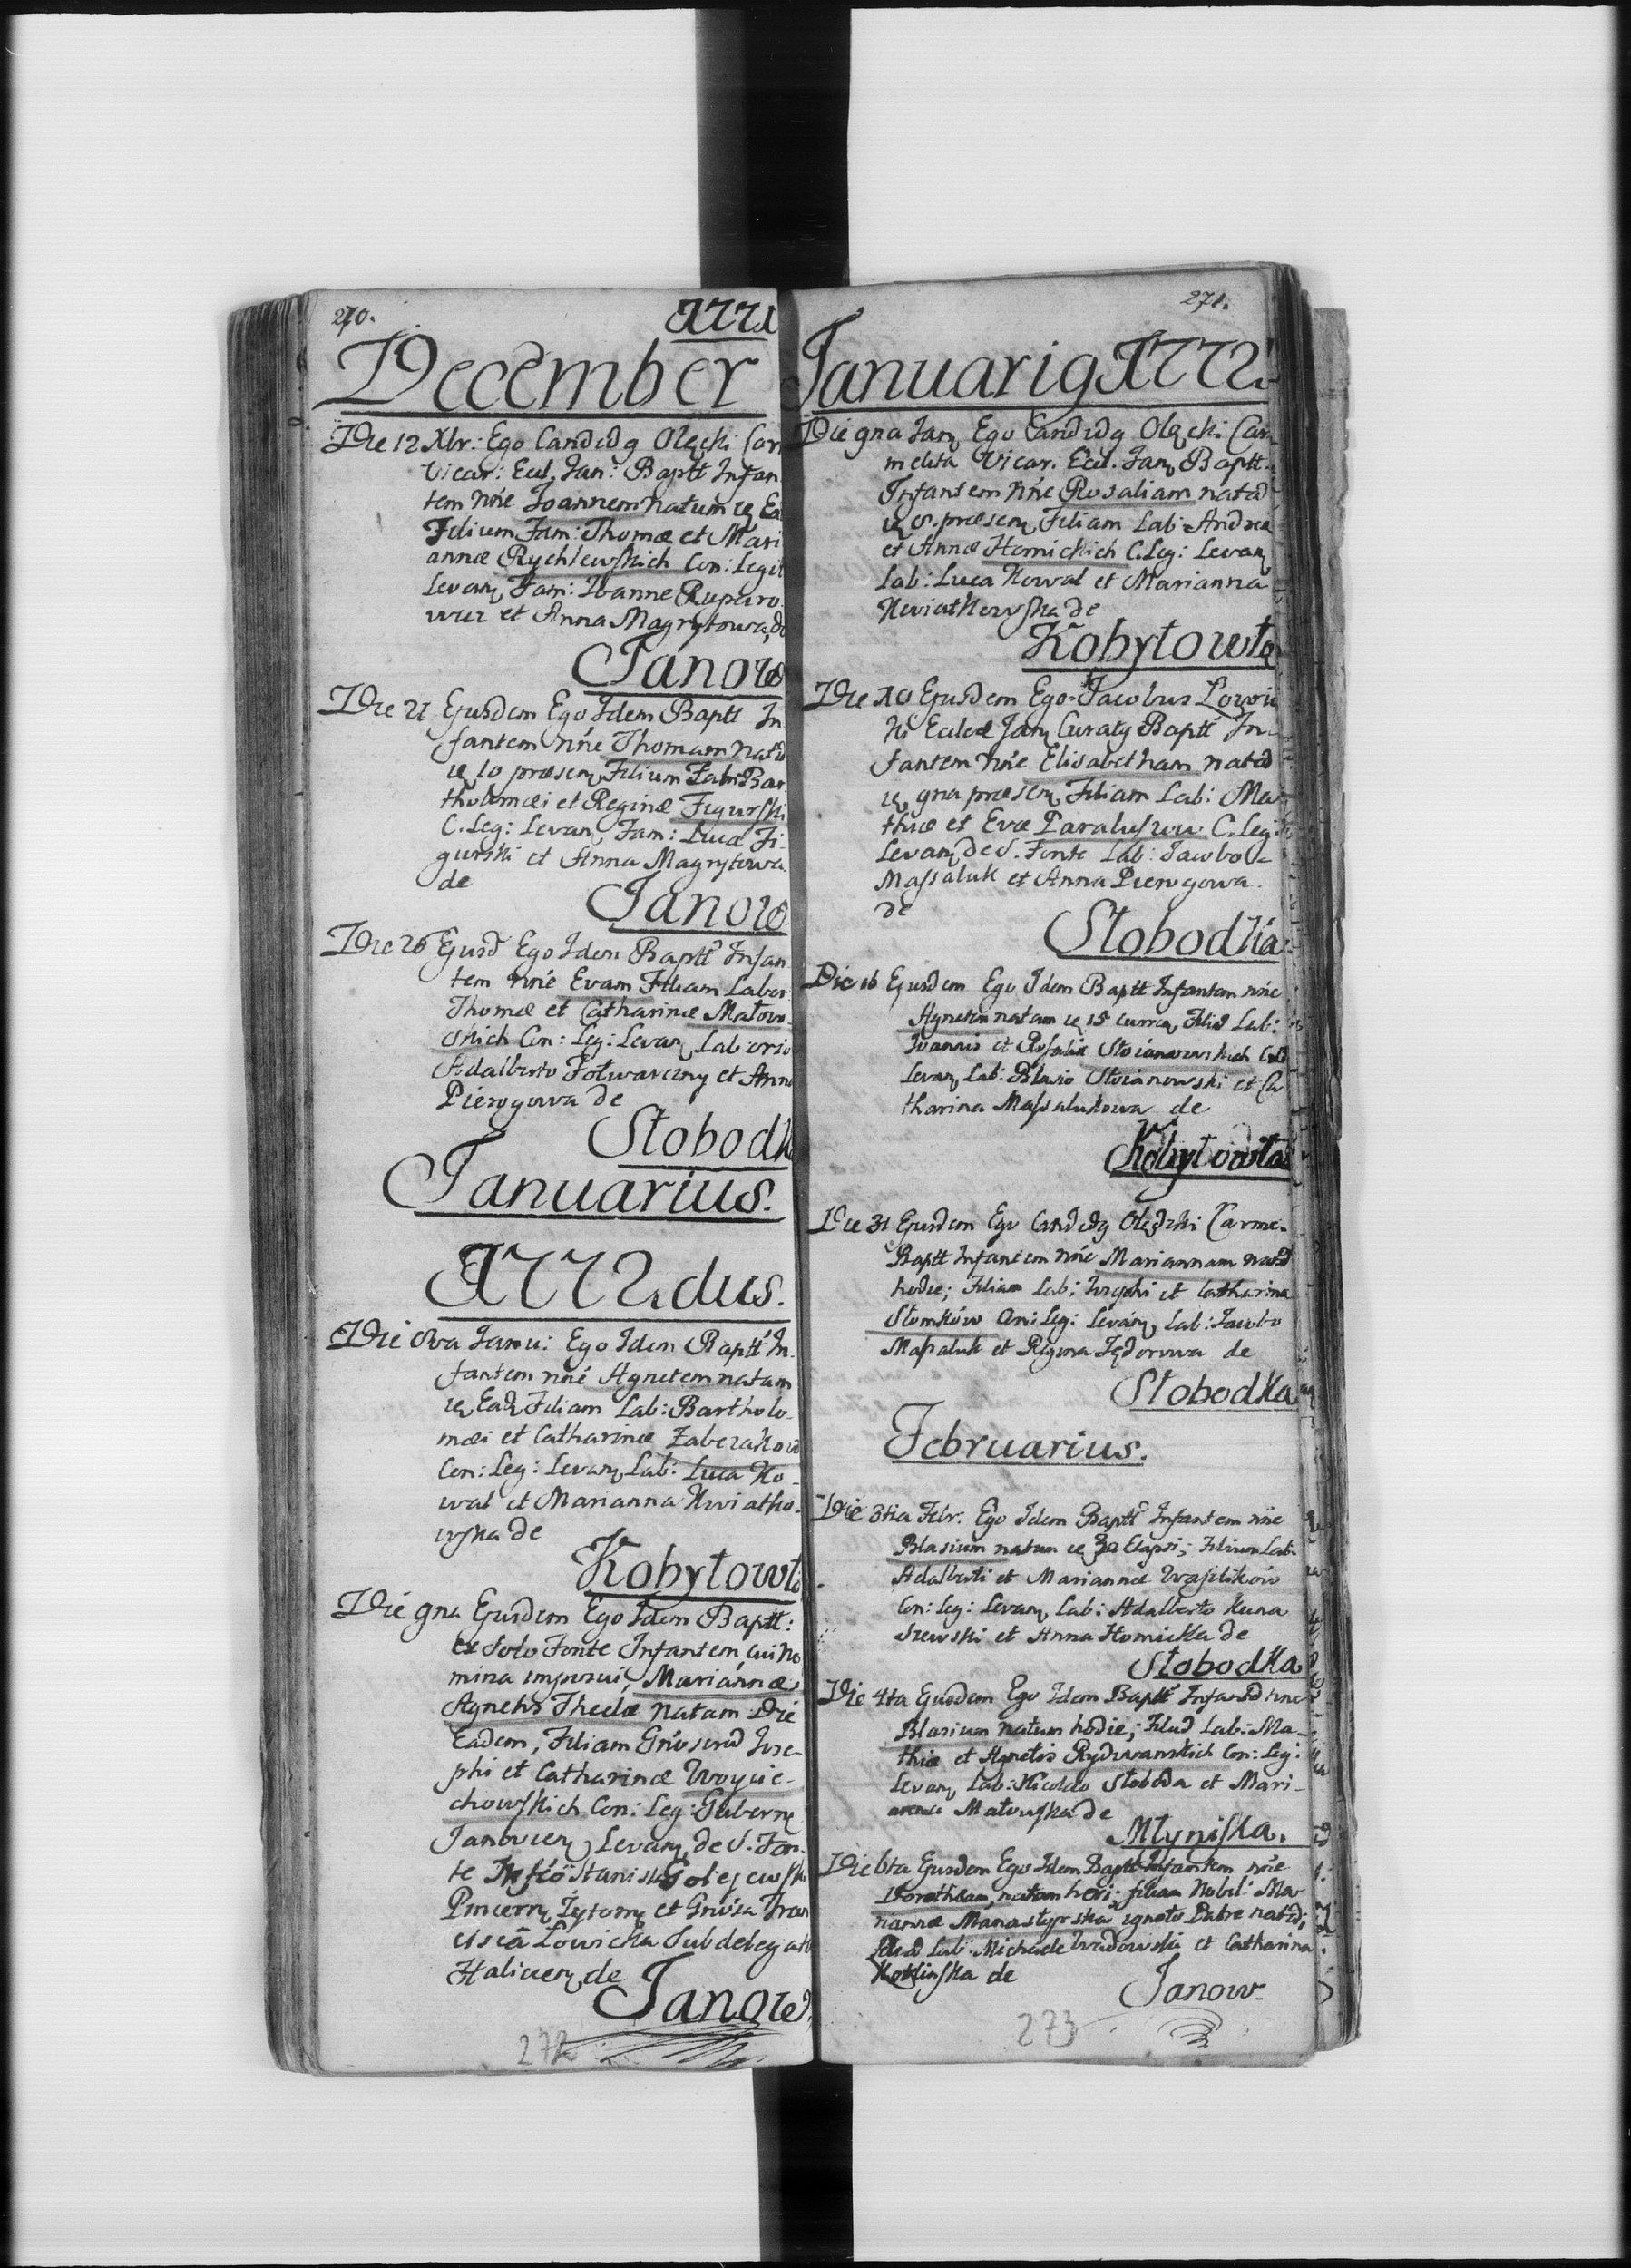 270.
1771
December
Die 12 Xbr: Ego Candidq Olęcki Car
Vicar: Eccl. Jan: Baptt Infan
tem nne Joannem natum ie Ea
Filium Fam: Thomæ et Mari
annæ Rychlewskich Con: Legit
Levan, Fam: Ioanne Ruparo
wicz et Anna Magrytowa, de
Janow
Die 21 Ejusdem Ego Idem Baptt In
fantem nne Thomam natū
ie 10 præsen, Filium Fab: Bar
tholomæi et Reginæ Figurski
C. Leg: Levan, Fam: Luca Fi-
gurski et Anna Magrytowa
de
Janow
Die 26 Ejusd Ego Idem Baptt Infan
tem nne Evam Filiam Labor
Thomæ et Catharinæ Małow-
skich Con: Leg: Levan, Laborio
Adalberto Fołwarczny et Anna
Pierogowa de
Słobodk
Januarius.
1772dus.
Die 8va Janu: Ego Idem Baptt In-
fantem nne Agnetem natam
ie Ead, Filiam Lab: Bartholo-
mæi et Catharinæ Zabczaków
Con: Leg: Levan, Lab: Luca Ko-
wal et Marianna Kwiatko-
wska de
Kobyłowł
Die 9na Ejusdem Ego Idem Baptt:
ex Solo Fonte Infantem, cui no
mina imposui, Mariannæ
Agnetis Theclæ natam Die
Eadem, Filiam Gnosorū Jose-
phi et Catharinæ Woycie-
chowskich Con: Leg: Gubern
Janovien, Levan, de S. Fon-
te Stanis Golejewski
Pincern, Zytom, et Gnosa Fran
ciscā Łowicka Subdelegat
Halicien, de
Janow.
272
271.
Januariq 1772.
Die 9na Jan, Ego Candidq Olęcki Car-
melita Vicar. Eccl. Jan, Baptt.
Infantem nne Rosaliam natā
ie 8. præsen, Filiam Lab: Andreæ
et Annæ Homickich C. Leg: Levan,
Lab: Luca Kowal et Marianna
Kwiatkowska de
Kobyłowło
Die 10 Ejusdem Ego Jacobus Łowic
ki Eccleæ Jan, Curatq Baptt In-
fantem nne Elisabetham natā
ie, 9na præsen, Filiam Lab: Ma-
thiæ et Evæ Paralusow C. Leg:
Levan, de S. Fonte Lab: Jacobo
Massaluk et Anna Pierogowa.
de
Słobodka
Die 16 Ejusdem Ego Idem Baptt Infantem nne
Agnetem natam ie 15 curren, Filiā Lab:
Joannis et Rosaliæ Stoianowskich C L
Levan, Lab: Blasio Stoianowski et Ca
tharina Massalukowa de
Kobyłowła
Die 31 Ejusdem Ego Candidq Olędzki Carme-
Baptt Infantem nne Mariannam natā
hodie; Filiam Lab: Josephi et Catharina
Słomków Con: Leg: Levan, Lab: Jacobo
Massaluk et Regina Fędorowa de
Słobodka
Februarius.
Die 3tia Febr. Ego Idem Baptt Infantem nne
Blasium natum ie 30 Elapsi; Filium Lab:
Adalberti et Mariannæ Wasilików
Con: Leg: Levan, Lab: Adalberto Kuna
szewski et Anna Homicka de
Słobodka
Die 4ta Ejusdem Ego Idem Baptt Infantē nne
Blasium natum hodie; Filiū Lab: Ma-
thiæ et Agnetis Rydwanskich Con: Leg:
Levan, Lab: Nicolao Słoboda et Mari-
anna Małowska de
Młyniska.
Die 6ta Ejusdem Ego Idem Baptt Infantem nne
Dorotheam, natam heri; filiam Nobil: Ma-
riannæ Manastyrska ignoto Patre natā;
Lab: Michaele Wadowski et Catharina
de
Janow.
273